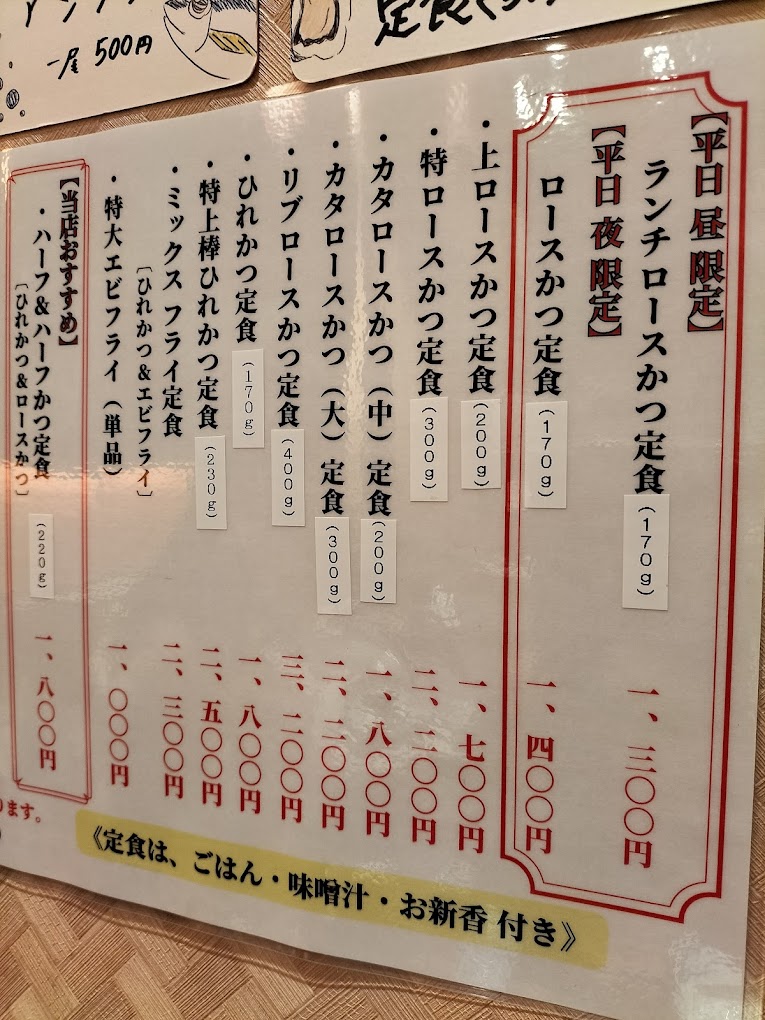 一尾 500円
定食
【平日 昼 限定】
ランチロースかつ定食 (170g) 一、三〇〇円
【平日 夜 限定】
ロースかつ定食 (170g) 一、四〇〇円
・上ロースかつ定食 (200g) 一、七〇〇円
・特ロースかつ定食 (300g) 二、二〇〇円
・カタロースかつ（中）定食 (200g) 一、八〇〇円
・カタロースかつ（大）定食 (300g) 二、二〇〇円
・リブロースかつ定食 (400g) 三、二〇〇円
・ひれかつ定食 (170g) 一、八〇〇円
・特上棒ひれかつ定食 (230g) 二、五〇〇円
・ミックス フライ定食 二、三〇〇円
［ひれかつ＆エビフライ］
・特大エビフライ（単品） 一、〇〇〇円
【当店おすすめ】
・ハーフ＆ハーフかつ定食 (220g) 一、八〇〇円
［ひれかつ＆ロースかつ］
ります。
《定食は、ごはん・味噌汁・お新香 付き》